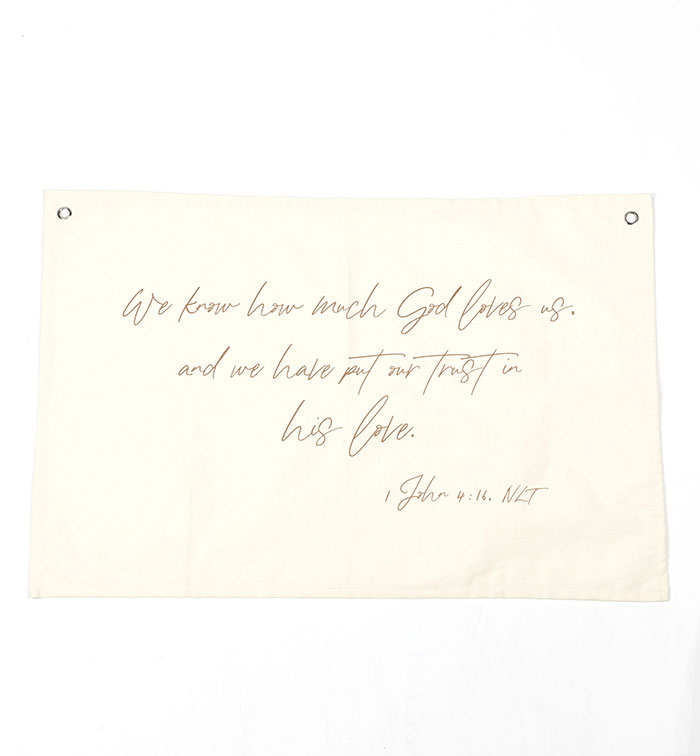 We know how much God loves us.
and we have put our trust in
his love.
1 John 4:16. NLT